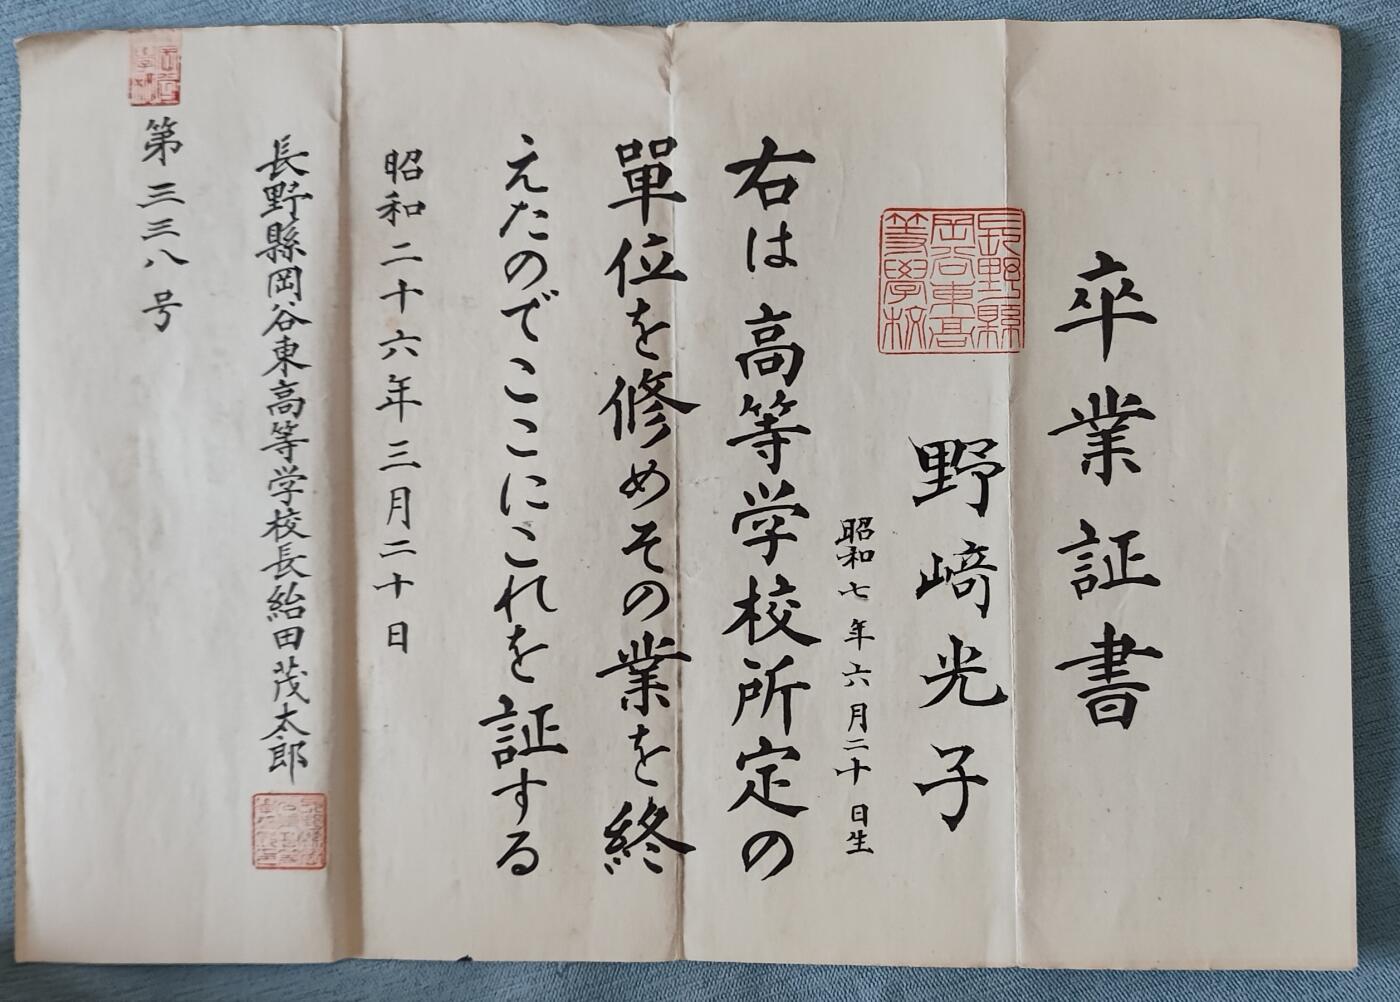 卒業証書
長野縣
岡谷東高
等學校
野﨑光子
昭和七年六月二十日生
右は高等学校所定の
單位を修めその業を終
えたのでここにこれを証する
昭和二十六年三月二十日
長野縣岡谷東高等学校長給田茂太郎
第三三八号